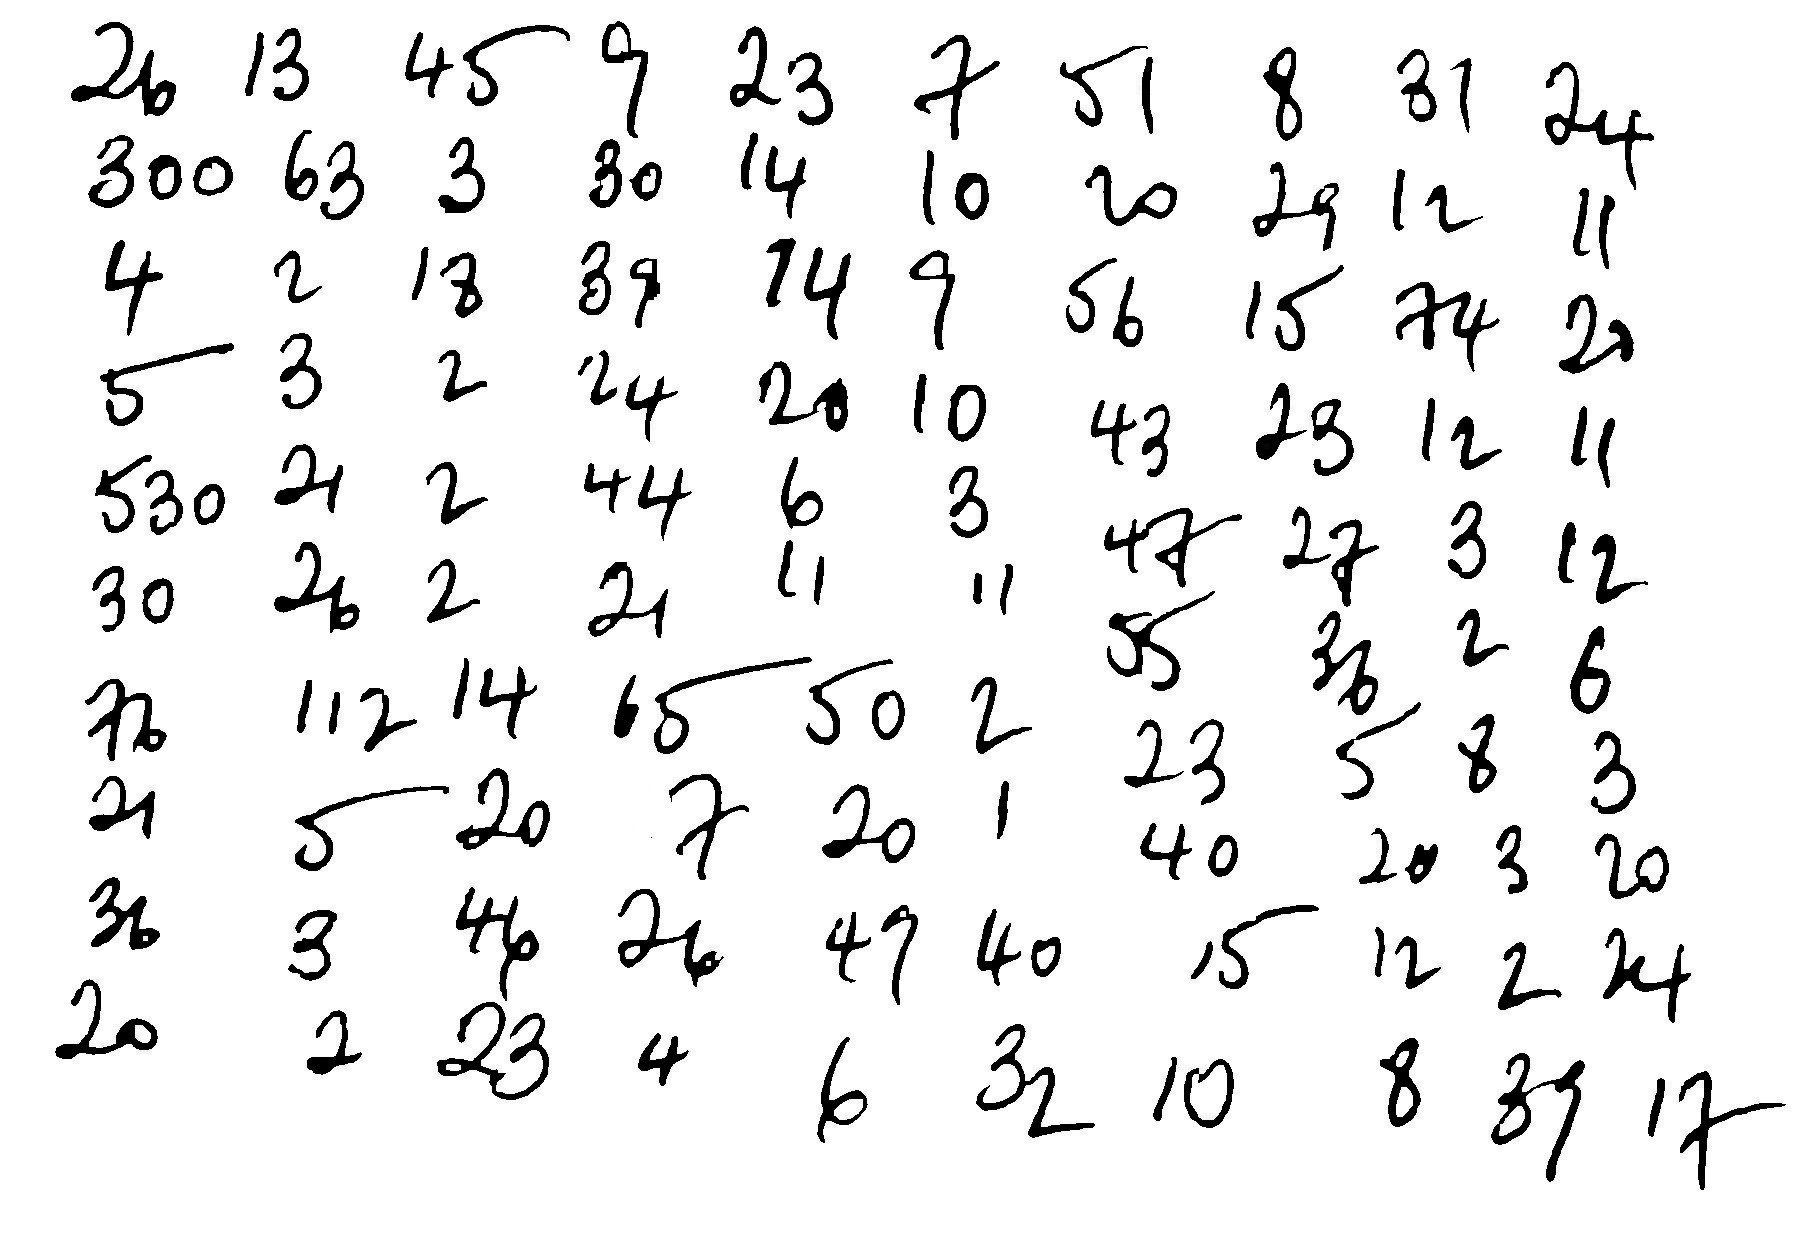 26 13 45 9 23 7 51 8 31 24
300 63 3 30 14 10 20 29 12 11
4 2 18 39 14 9 56 15 74 20
5 3 2 24 20 10 43 23 12 11
530 21 2 44 6 3 47 27 3 12
30 26 2 21 11 11 55 36 2 6
76 112 14 65 50 2 23 5 8 3
21 5 20 7 20 1 40 20 3 20
36 3 46 26 49 40 15 12 2 24
20 2 23 4 6 32 10 8 39 17